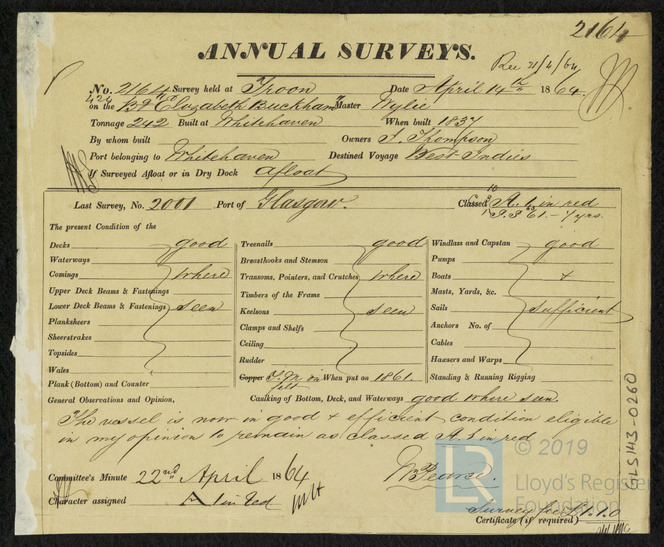 2164
ANNUAL SURVEYS.
Rec 21/4/64
No. 2164 Survey held at Troon Date April 14th 1864
424
on the Bk Elizabeth Buckham Master Wylie
Tonnage 242 Built at Whitehaven When built 1837
By whom built Owners J. Thompson
Port belonging to Whitehaven Destined Voyage West Indies
If Surveyed Afloat or in Dry Dock Afloat
Last Survey, No. 2001 Port of Glasgow. Classed A.1 in red
61 - 7 yrs.
The present Condition of the
Decks good Treenails good Windlass and Capstan good
Waterways Breasthooks and Stemson Pumps
Comings where Transoms, Pointers, and Crutches where Boats &
Upper Deck Beams & Fastenings Timbers of the Frame Masts, Yards, &c.
Lower Deck Beams & Fastenings seen Keelsons seen Sails sufficient
Planksheers Clamps and Shelfs Anchors No. of
Sheerstrakes Ceiling Cables
Topsides Rudder Hawsers and Warps
Wales Copper Y.M. on felt When put on 1861. Standing & Running Rigging
Plank (Bottom) and Counter
General Observations and Opinion, Caulking of Bottom, Deck, and Waterways good where seen.
The vessel is now in good & efficient condition eligible
in my opinion to remain as classed A.1 in red
Committee's Minute 22nd April 1864
Character assigned A 1 in red
Survey fee £1.1.0
Certificate (if required)
© 2019
LR
Lloyd's Register
Foundation
GLS143-0260